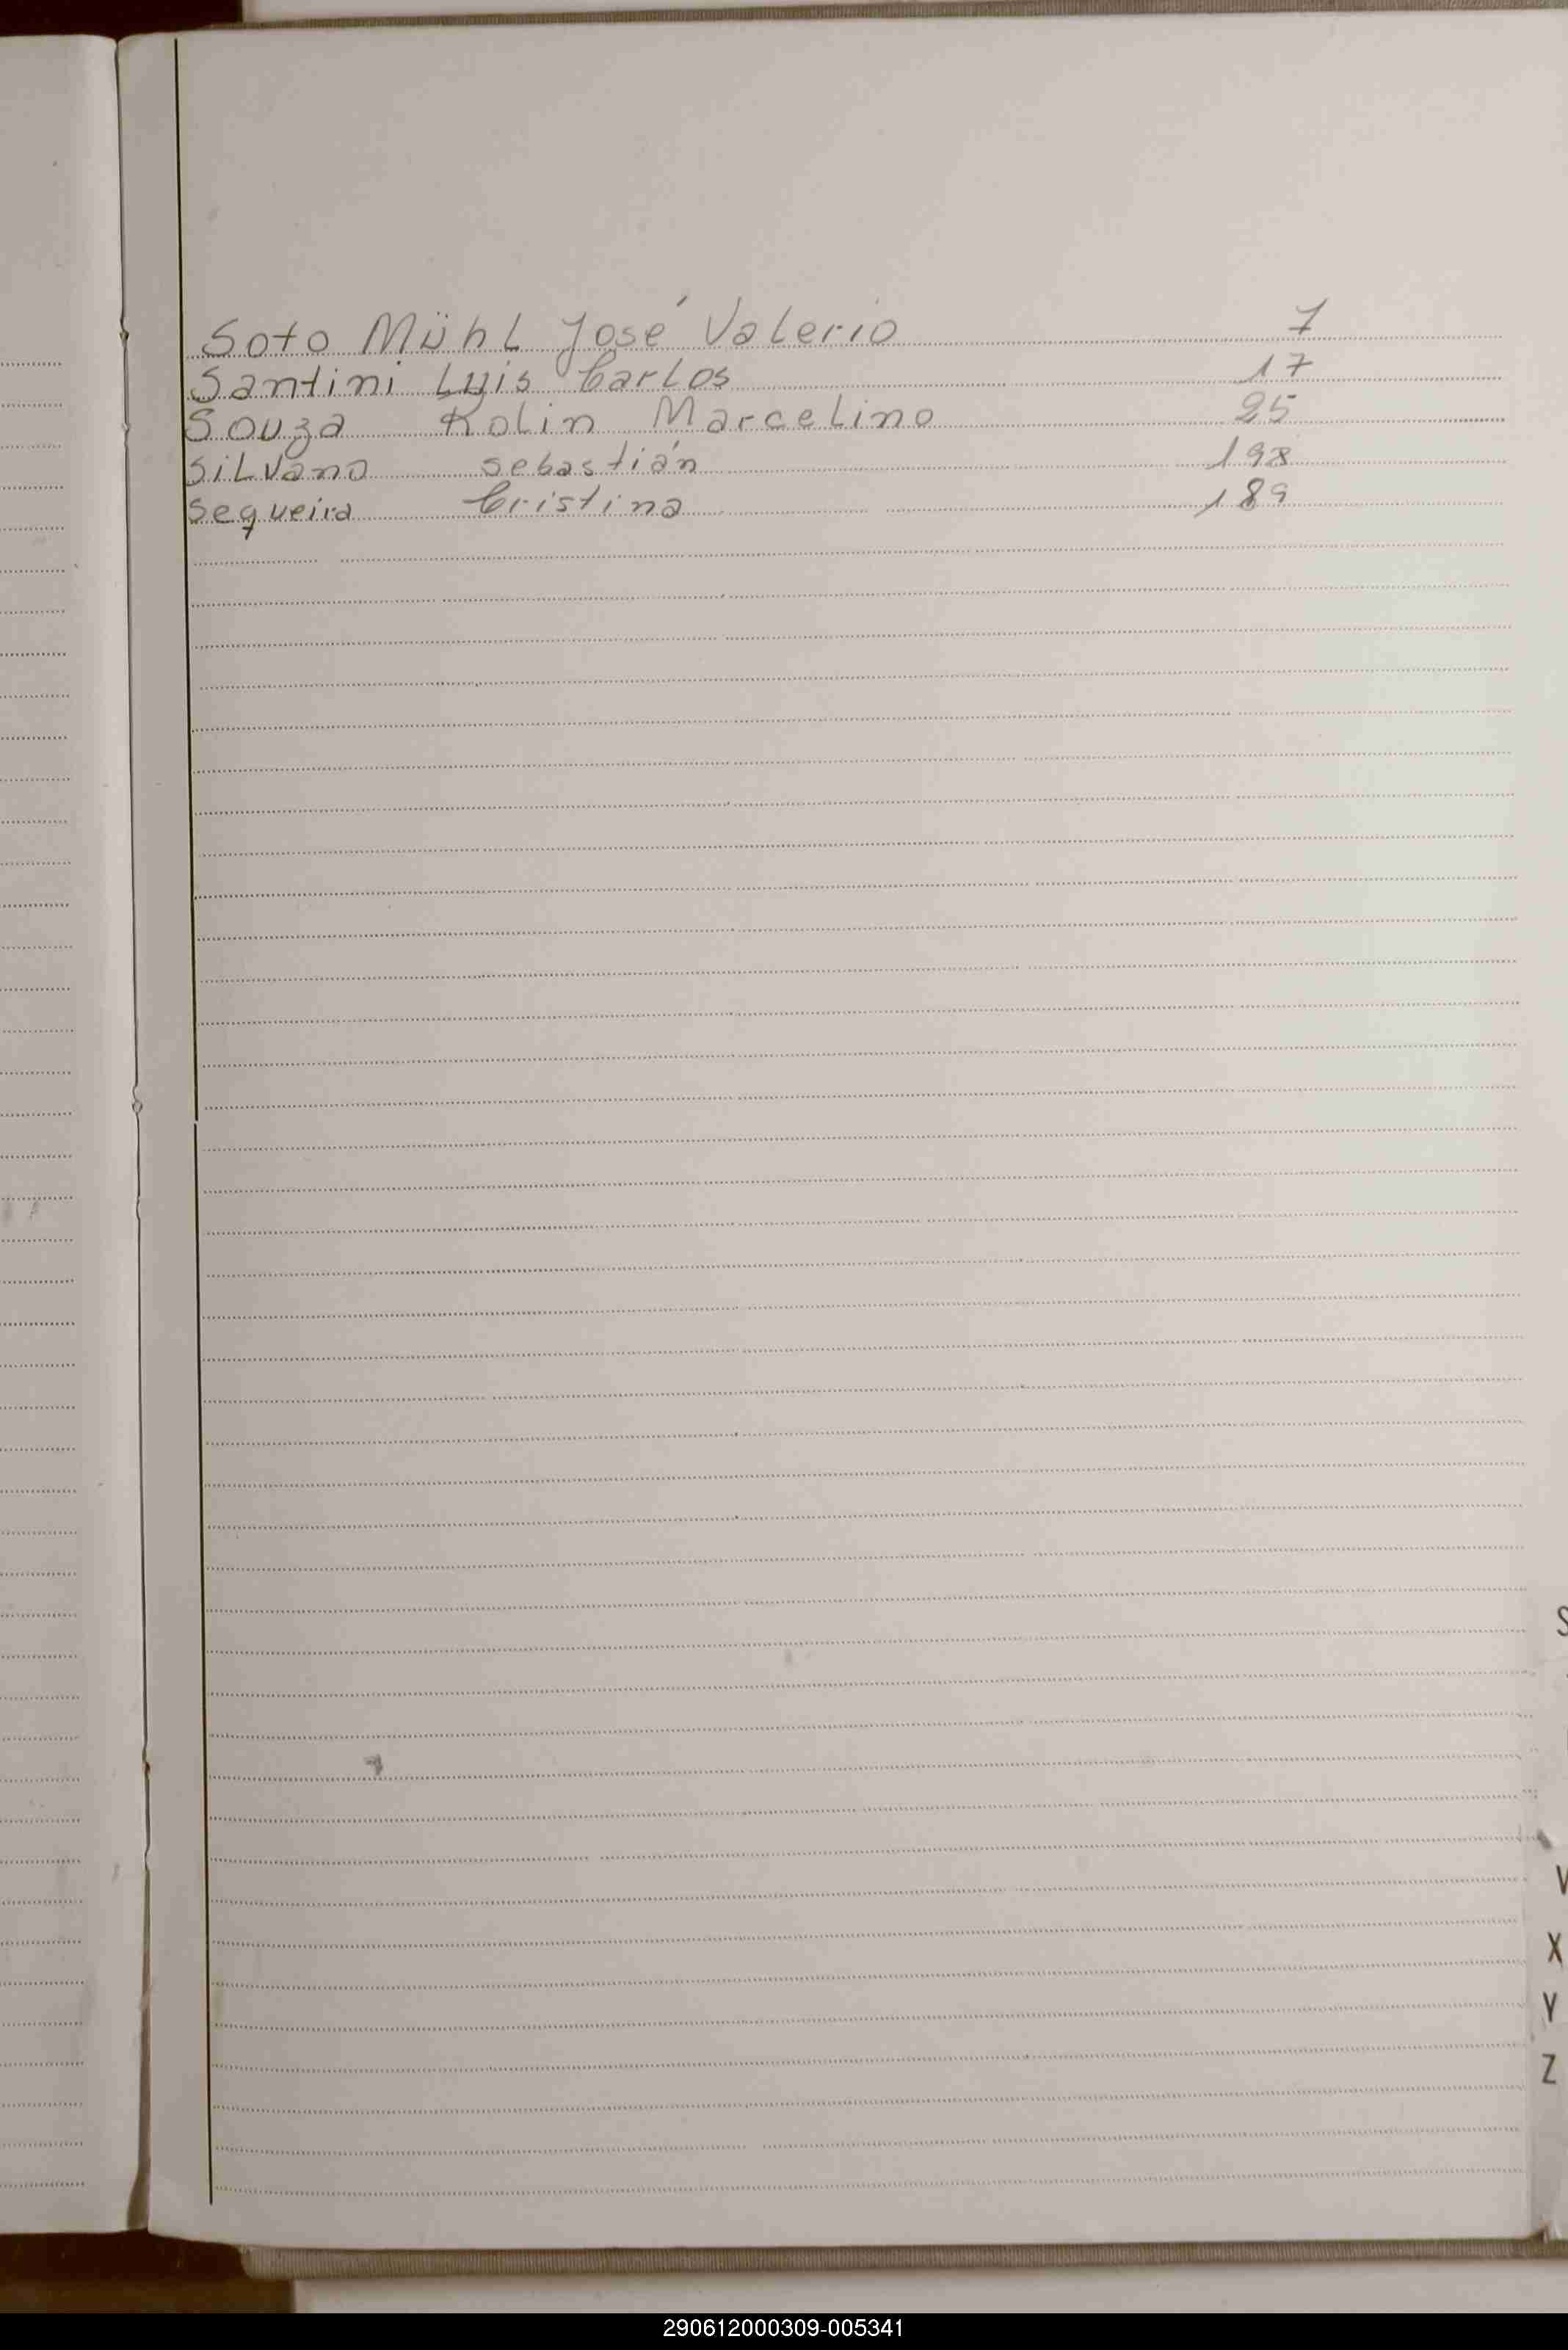 Soto Mühl José Valerio 7
Santini Luis Carlos 17
Souza Rolin Marcelino 25
Silvano Sebastián 198
Sequeira Cristina 189
S
V
X
Y
Z
290612000309-005341